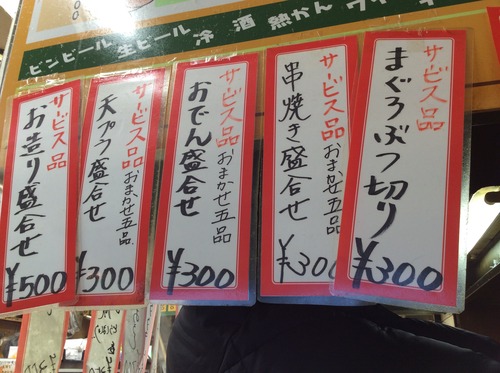 ビンビール 生ビール 冷酒 熱かん
サービス品
まぐろぶつ切り
¥300
サービス品
おまかせ五品
串焼き盛合せ
¥300
サービス品
おまかせ五品
おでん盛合せ
¥300
サービス品
おまかせ五品
天プラ盛合せ
¥300
サービス品
お造り盛合せ
¥500